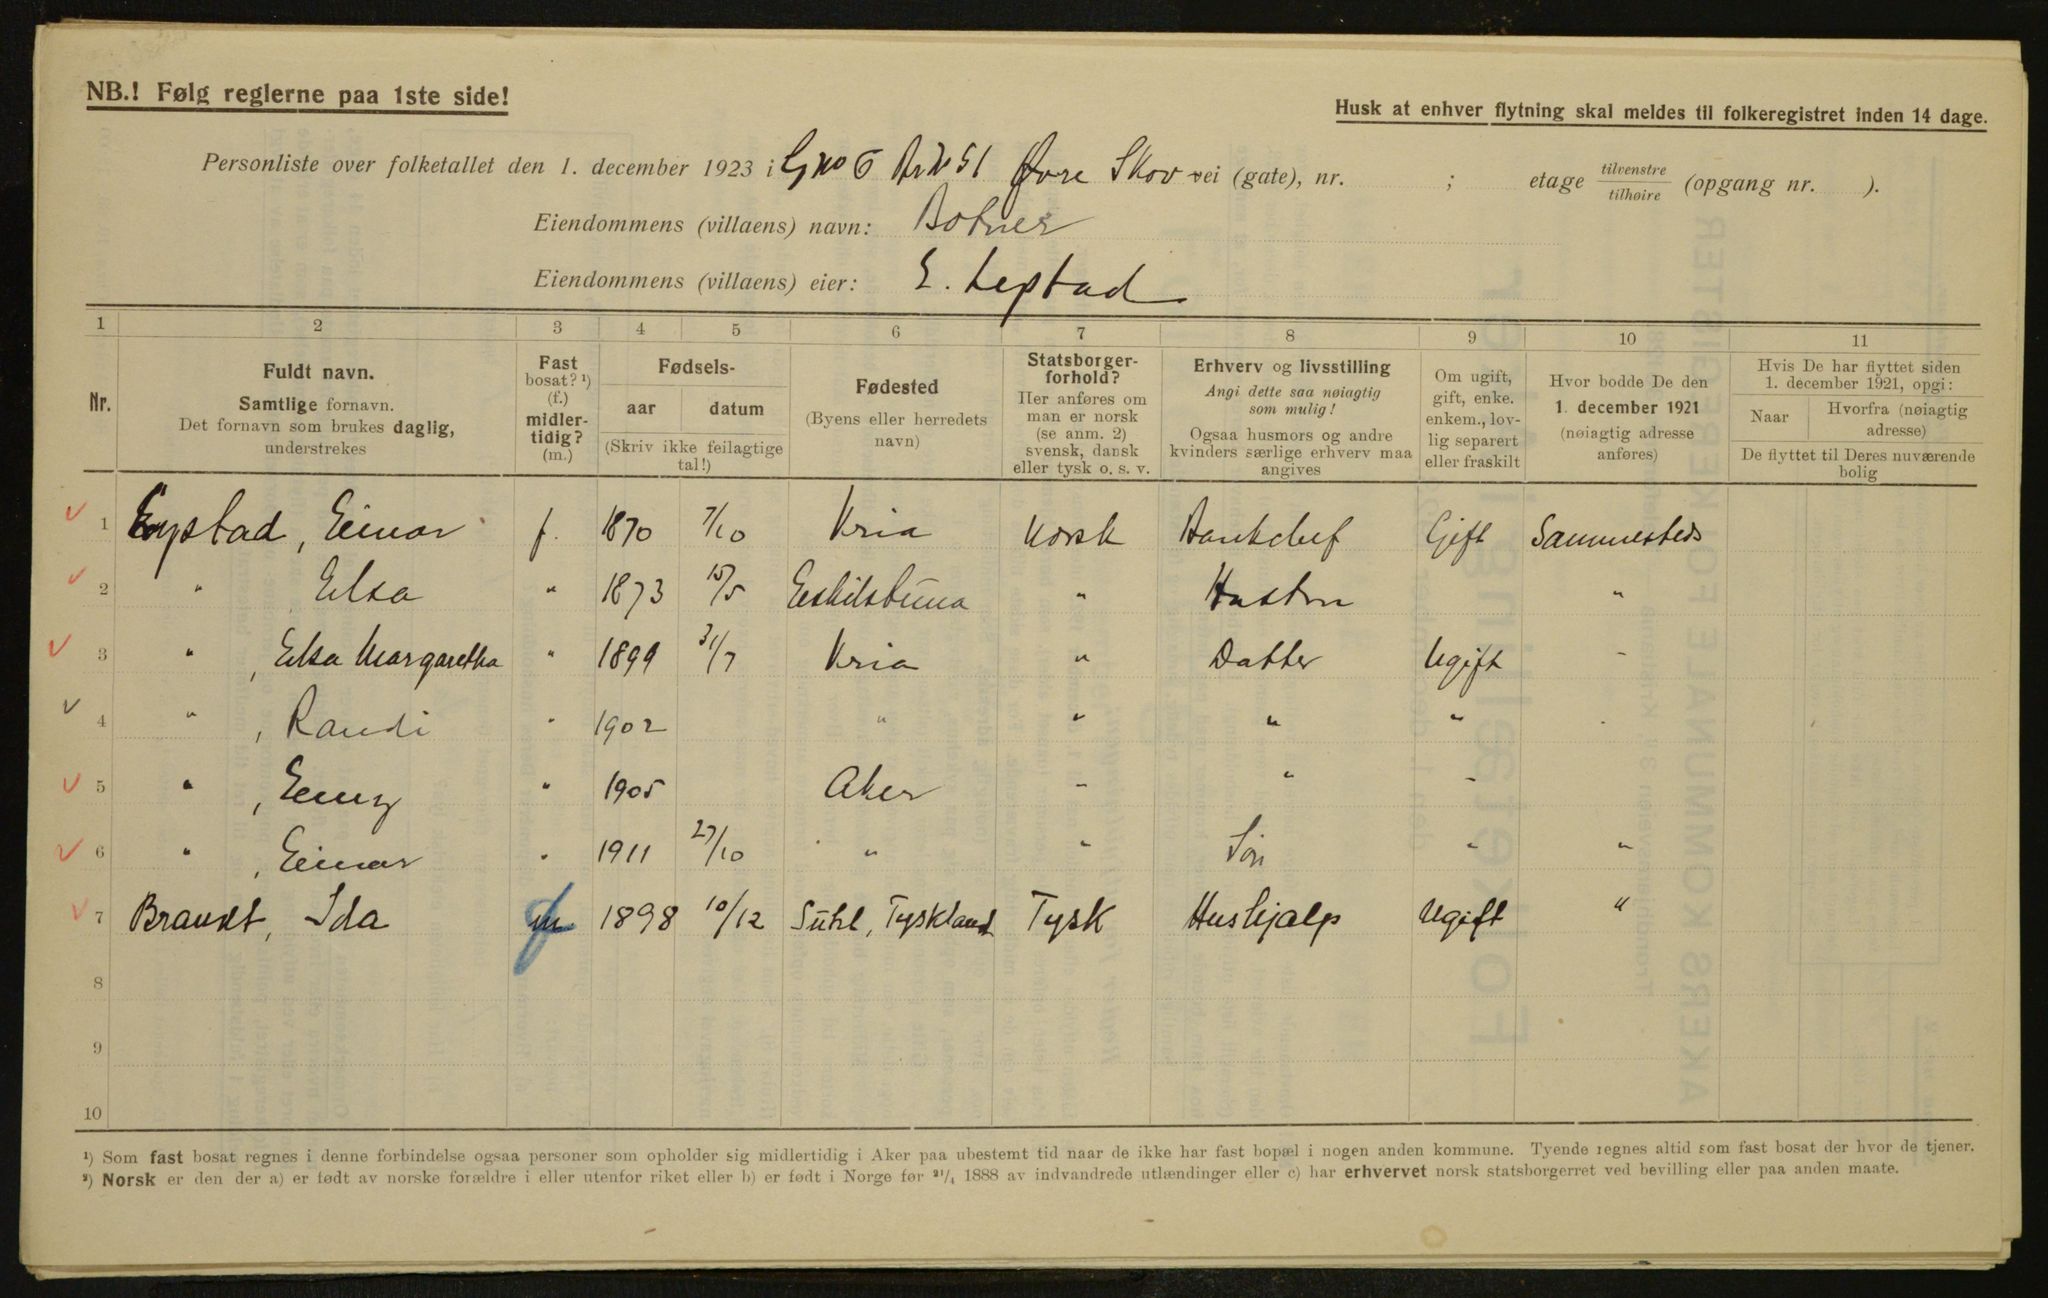 NB.! Følg reglerne paa 1ste side!
Husk at enhver flytning skal meldes til folkeregistret inden 14 dage.
Personliste over folketallet den 1. december 1923 i Gno 6 Brn 51 Øvre Skov vei (gate), nr. ; etage tilvenstre/tilhøire (opgang nr. ).
Eiendommens (villaens) navn: Botner
Eiendommens (villaens) eier: E.
1 2 3 4 5 6 7 8 9 10 11
Nr. Fuldt navn. Samtlige fornavn. Det fornavn som brukes daglig, understrekes
Fast bosat? ¹) (f.) midlertidig? (m.)
Fødsels- aar datum (Skriv ikke feilagtige tal!)
Fødested (Byens eller herredets navn)
Statsborgerforhold? Her anføres om man er norsk (se anm. 2) svensk, dansk eller tysk o. s. v.
Erhverv og livsstilling Angi dette saa nøiagtig som mulig! Ogsaa husmors og andre kvinders særlige erhverv maa angives
Om ugift, gift, enke. enkem., lovlig separert eller fraskilt
Hvor bodde De den 1. december 1921 (nøiagtig adresse anføres)
Hvis De har flyttet siden 1. december 1921, opgi: Naar Hvorfra (nøiagtig adresse) De flyttet til Deres nuværende bolig
1 Einar f. 1870 7/10 Kria Norsk Bankchef Gift Sammesteds
2 " Elsa " 1873 15/5 Eskilstuna " Hustru "
3 " , Elsa Margaretha " 1899 31/7 Kria " Datter Ugift "
4 " , Randi " 1902 " " " "
5 " , Emmy " 1905 Aker " " "
6 " , Einar " 1911 27/10 " " Søn " "
7 Brandt, Ida m f 1898 10/12 Suhl, Tyskland Tysk Hushjælp Ugift "
8
9
10
¹) Som fast bosat regnes i denne forbindelse ogsaa personer som opholder sig midlertidig i Aker paa ubestemt tid naar de ikke har fast bopæl i nogen anden kommune. Tyende regnes altid som fast bosat der hvor de tjener.
²) Norsk er den der a) er født av norske forældre i eller utenfor riket eller b) er født i Norge før 21/4 1888 av indvandrede utlændinger eller c) har erhvervet norsk statsborgerret ved bevilling eller paa anden maate.